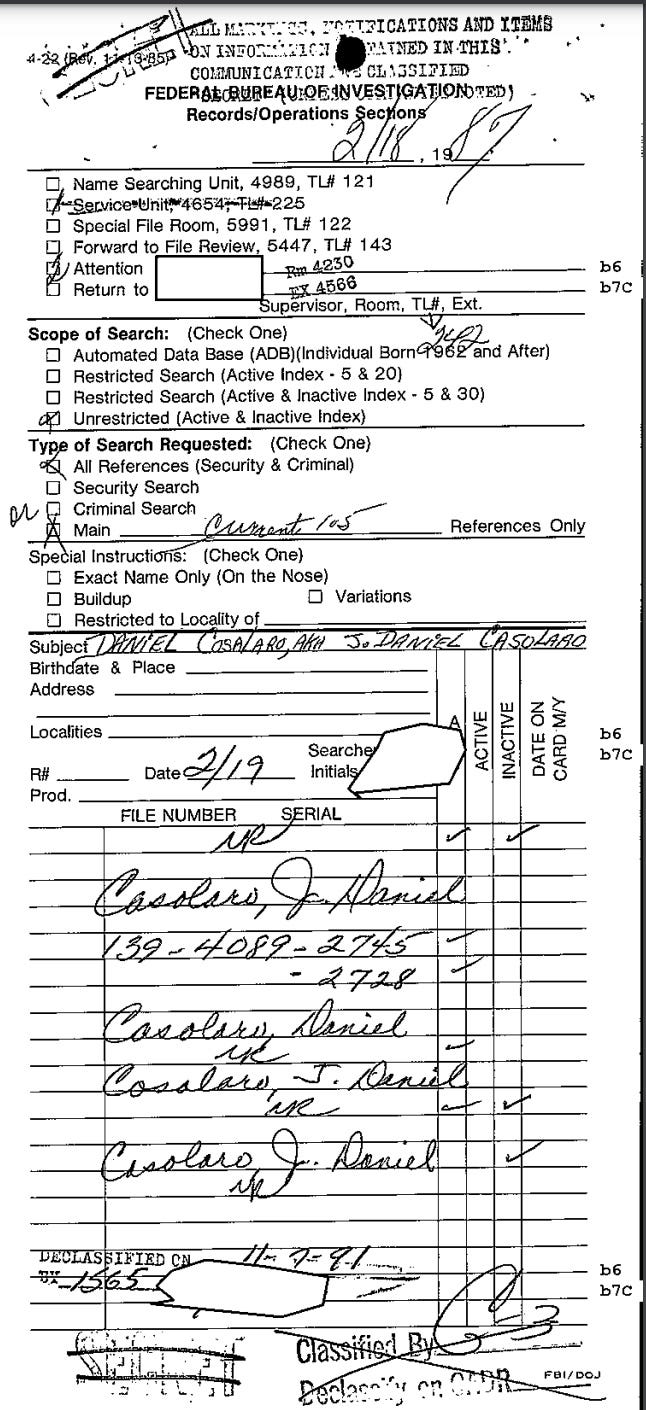 ALL MARKINGS, NOTIFICATIONS AND ITEMS
4-22 (Rev. 11-13-85)
ON INFORMATION CONTAINED IN THIS
COMMUNICATION ARE CLASSIFIED
FEDERAL BUREAU OF INVESTIGATION
SECRET (UNLESS OTHERWISE NOTED)
Records/Operations Sections
2/18, 1987
Name Searching Unit, 4989, TL# 121
Service Unit, 4654, TL# 225
Special File Room, 5991, TL# 122
Forward to File Review, 5447, TL# 143
Attention Rm 4230 b6
Return to EX 4566 b7C
Supervisor, Room, TL#, Ext.
242
Scope of Search: (Check One)
Automated Data Base (ADB)(Individual Born 1962 and After)
Restricted Search (Active Index - 5 & 20)
Restricted Search (Active & Inactive Index - 5 & 30)
Unrestricted (Active & Inactive Index)
Type of Search Requested: (Check One)
All References (Security & Criminal)
Security Search
or Criminal Search
Main Current 105 References Only
Special Instructions: (Check One)
Exact Name Only (On the Nose)
Buildup Variations
Restricted to Locality of
Subject DANIEL COSALARO, AKA J. DANIEL CASOLARO
Birthdate & Place
Address
Localities b6
b7C
R# Date 2/19 Searcher Initials
Prod.
ACTIVE
INACTIVE
DATE ON CARD M/Y
FILE NUMBER SERIAL
NR
Casolaro, J. Daniel
139-4089-2745
- 2728
Casolaro, Daniel
NR
Cosalaro, J. Daniel
NR
Casolaro, J. Daniel
NR
DECLASSIFIED ON 11-7-91
1565
b6
b7C
C-3
SECRET
Classified By
Declassify on OADR
FBI/DOJ